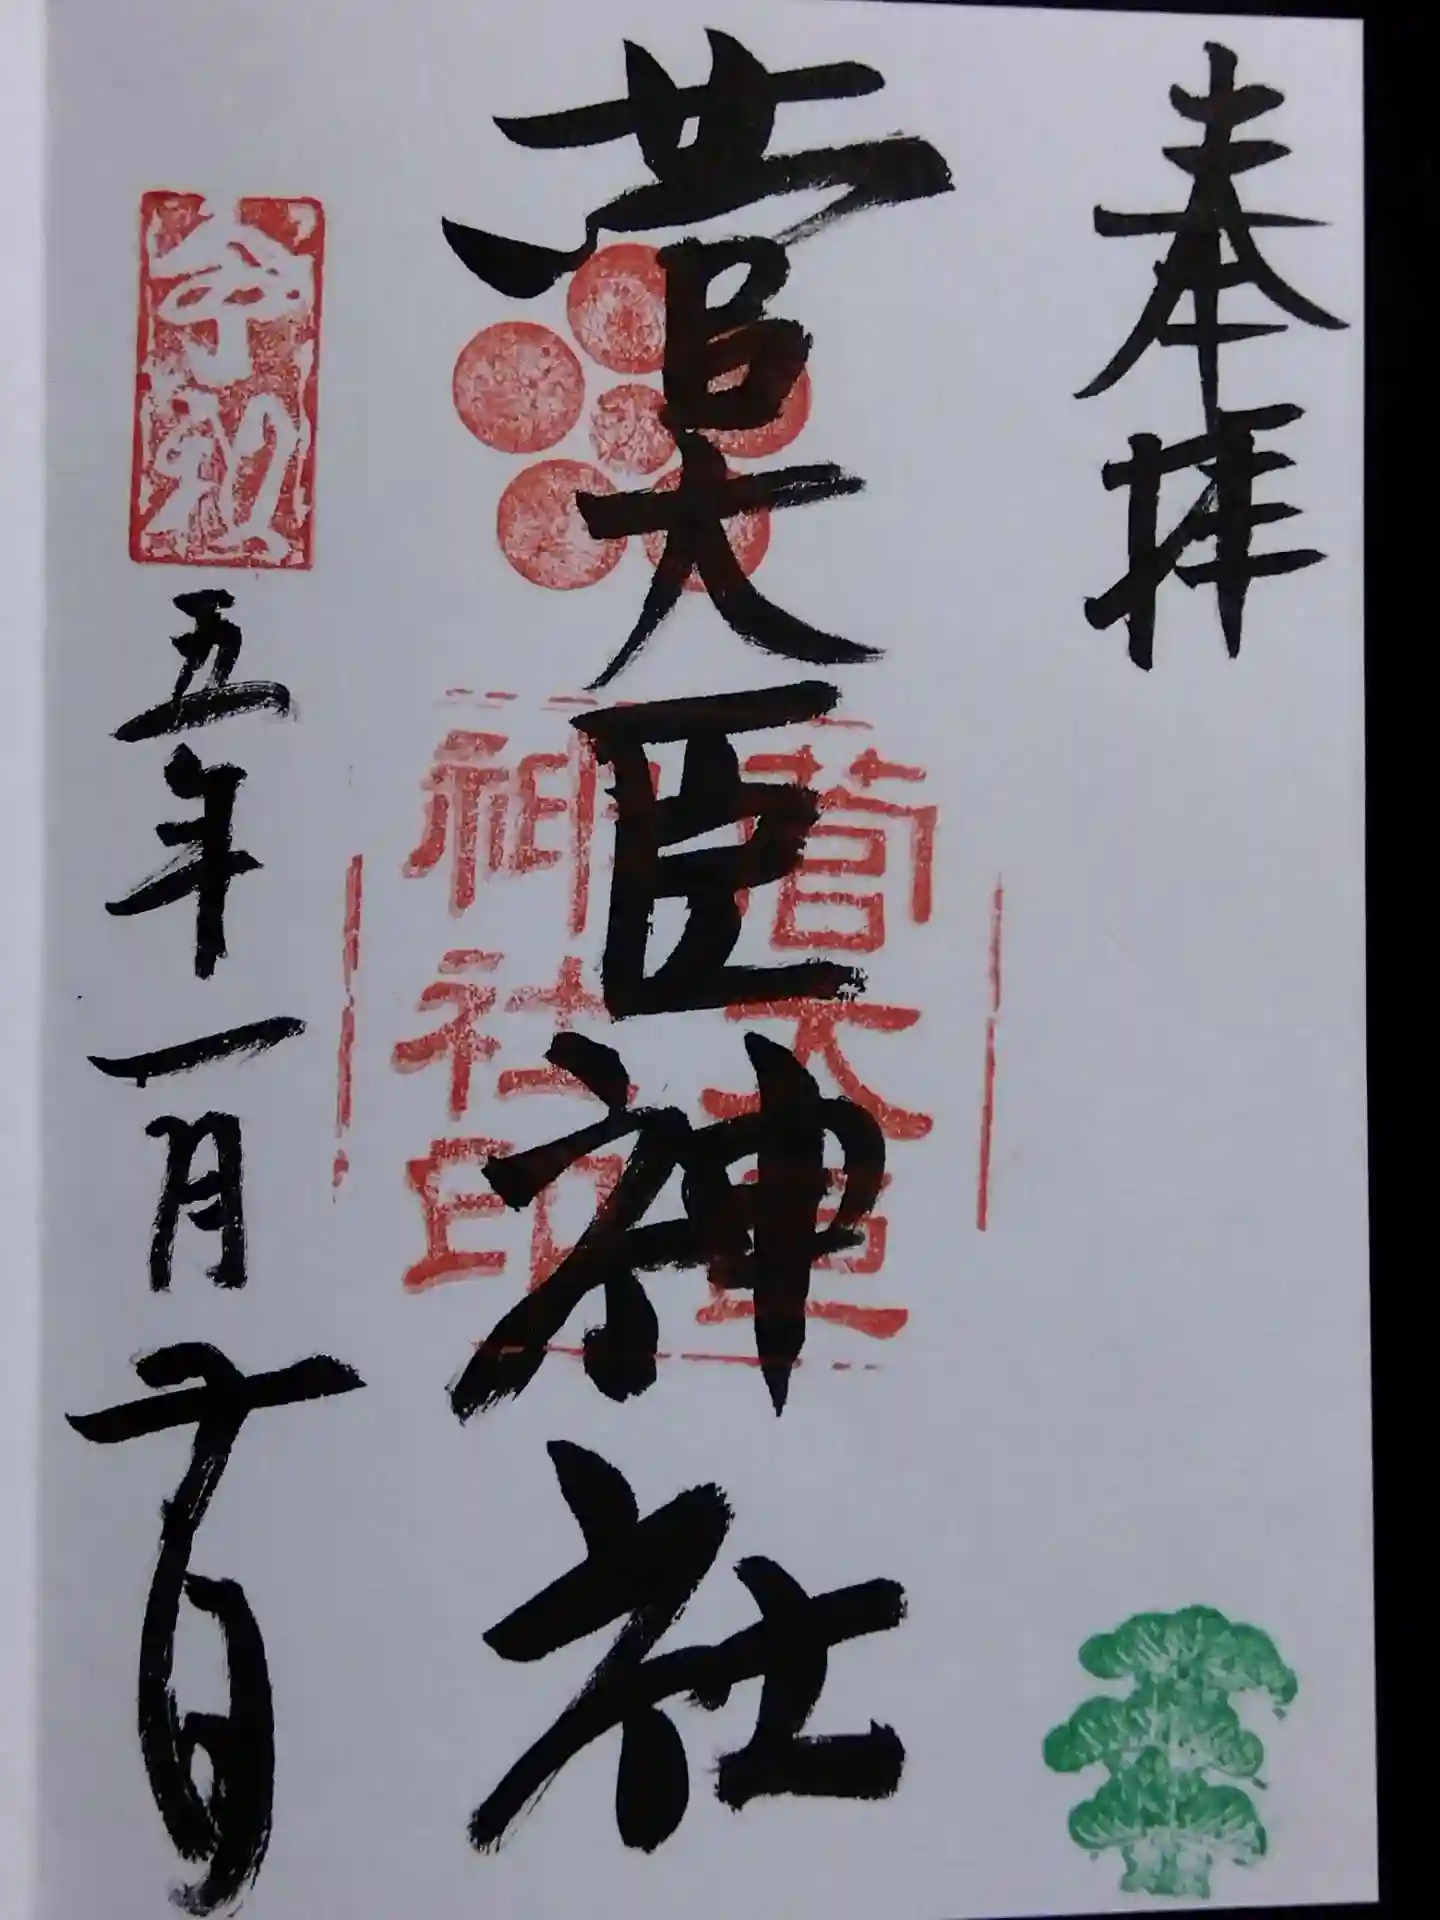 奉拝
菅大臣神社
菅大臣
神社印
令和
五年一月十一日